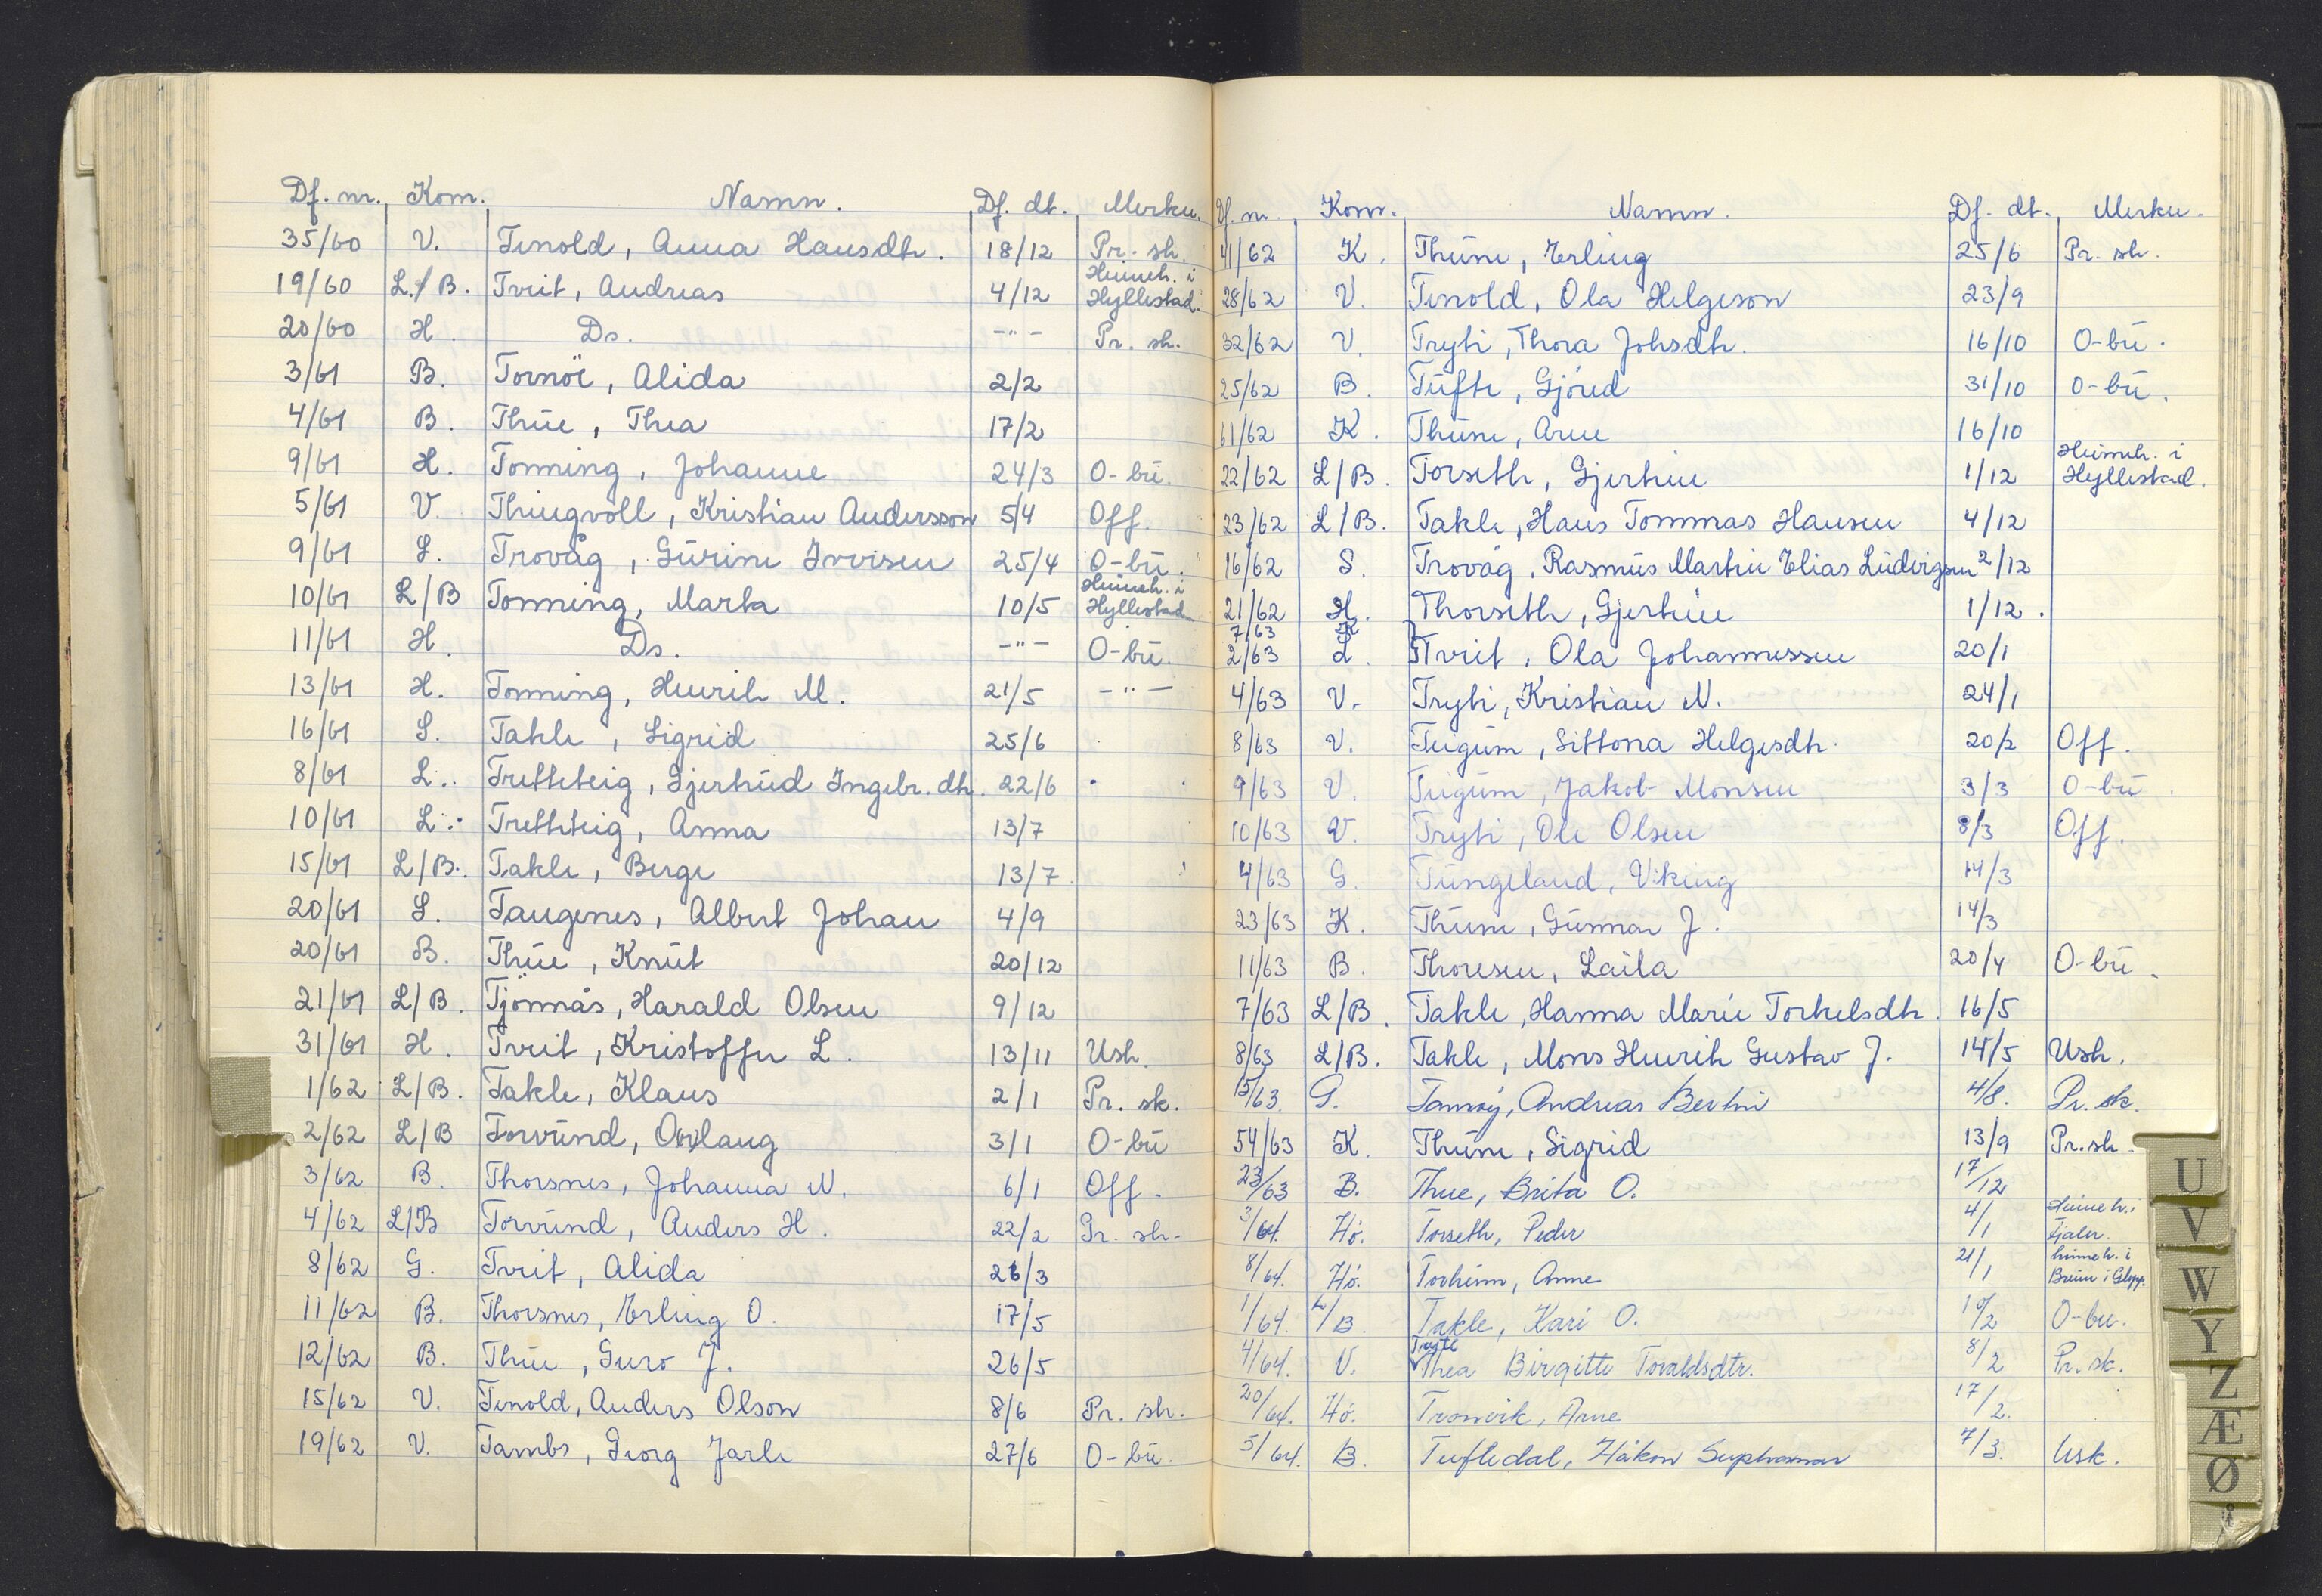 Df. nr. Kom. Namn. Df. dt. Merkn.
35/60 V. Tenold, Anna Hansdtr. 18/12 Pr. sk.
19/60 L/B. Tveit, Andreas 4/12 Heimeh. i Hyllestad.
20/60 H. Ds. -"- Pr. sk.
3/61 B. Tornöe, Alida 2/2
4/61 B. Thue, Thea 17/2
9/61 H. Tonning, Johanne 24/3 O-bu.
5/61 V. Thingvoll, Kristian Andersson 5/4 Off.
9/61 S. Trovåg, Gurine Iversen 25/4 O-bu.
10/61 L/B Tonning, Marta 10/5 Heimeh. i Hyllestad
11/61 H. Ds. -"- O-bu.
13/61 H. Tonning, Henrik M. 21/5 -"-
16/61 S. Takle, Sigrid 25/6
8/61 L. Tretteteig, Gjertrud Ingebr. dtr. 22/6
10/61 L. Tretteteig, Anna 13/7
15/61 L/B. Takle, Berge 13/7.
20/61 S. Taugenes, Albert Johan 4/9
20/61 B. Thue, Knut 20/12
21/61 L/B. Tjönnås, Harald Olsen 9/12
31/61 H. Tveit, Kristoffer L. 13/11 Usk.
1/62 L/B. Takle, Klaus 2/1 Pr. sk.
2/62 L/B Torvund, Oddlaug 3/1 O-bu
3/62 B. Thorsnes, Johanna N. 6/1 Off.
4/62 L/B Torvund, Anders H. 22/2 Pr. sk.
8/62 G. Tveit, Alida 26/3
11/62 B. Thorsnes, Erling O. 17/5
12/62 B. Thue, Guro J. 26/5
15/62 V. Tenold, Anders Olson 8/6 Pr. sk.
19/62 V. Tambs, Georg Jarle 27/6 O-bu.
Df. nr. Kom. Namn. Df. dt. Merkn.
41/62 K. Thune, Erling 25/6 Pr. sk.
28/62 V. Tenold, Ola Helgeson 23/9
32/62 V. Tryti, Thora Johsdtr. 16/10 O-bu.
25/62 B. Tufte, Gjöred 31/10 O-bu.
61/62 K. Thune, Arne 16/10
22/62 L/B. Torseth, Gjertine 1/12 Heimeh. i Hyllestad.
23/62 L/B. Takle, Hans Tommas Hansen 4/12
16/62 S. Trovåg, Rasmus Martin Elias Ludvigsen 2/12
21/62 H. Thorseth, Gjertine 1/12.
7/63 K
2/63 L. Tveit, Ola Johannessen 20/1
4/63 V. Tryti, Kristian N. 24/1
8/63 V. Teigum, Sittona Helgesdtr. 20/2 Off.
9/63 V. Teigum, Jakob Monsen 3/3 O-bu.
10/63 V. Tryti, Ole Olsen 8/3 Off.
4/63 G. Tungeland, Viking 14/3
23/63 K. Thune, Gunnar J. 14/3
11/63 B. Thoresen, Laila 20/4 O-bu.
7/63 L/B. Takle, Hanna Marie Torkelsdtr. 16/5
8/63 L/B. Takle, Mons Henrik Gustav J. 14/5 Usk.
15/63. G. Tannöy, Andreas Bertin 4/8. Pr. sk.
54/63 K. Thune, Sigrid 13/9 Pr. sk.
23/63 B. Thue, Brita O. 17/12
3/64. Hö. Torseth, Peder 4/1 Heimeh. i Fjaler.
8/64. Hö. Torheim, Anne 21/1 heimeh. i Breim i Glopp.
1/64. L/B Takle, Kari O. 10/2 O-bu.
4/64. V. Tryti Thea Birgitte Tovaldsdtr. 8/2 Pr. sk.
20/64. Hö. Tronvik, Arne 17/2.
5/64. B. Tuftedal, Håkon 7/3. Usk.
U
V
W
Y
Z
Æ
Ø
Å